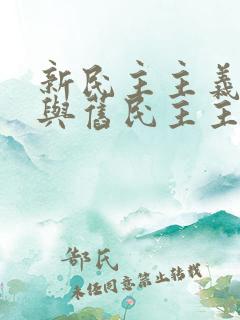 新民主主義
與舊民主主
郜氏
未经同意禁止转载